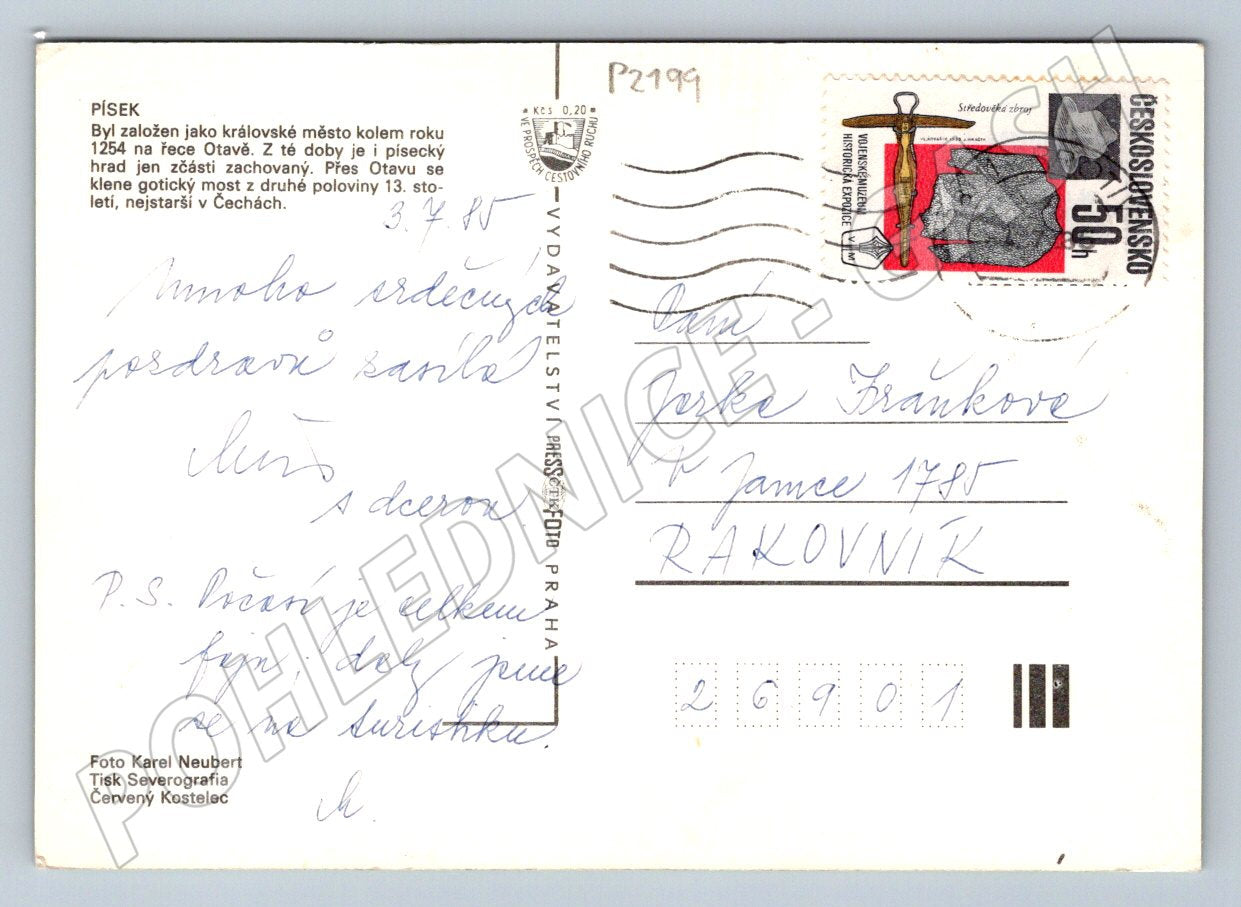 PÍSEK
Byl založen jako královské město kolem roku
1254 na řece Otavě. Z té doby je i písecký
hrad jen zčásti zachovaný. Přes Otavu se
klene gotický most z druhé poloviny 13. sto-
letí, nejstarší v Čechách.
3. 7. 85
Mnoho srdečných
pozdravů zasílá
s dcerou.
P. S. Počasí je celkem
fajn, jsme
se na turistiku.
M.
Foto Karel Neubert
Tisk Severografia
Červený Kostelec
Kčs 0,20
VE PROSPĚCH CESTOVNÍHO RUCHU
VYDAVATELSTVÍ PRESSFOTO PRAHA
ČTK
P2199
Středověká zbroj
ČESKOSLOVENSKO
50h
VOJENSKÉ MUZEUM
HISTORICKÁ EXPOZICE
VHM
Paní
Jarka Fráňková
V Jamce 1785
RAKOVNÍK
26901
POHLEDNICE.CASH